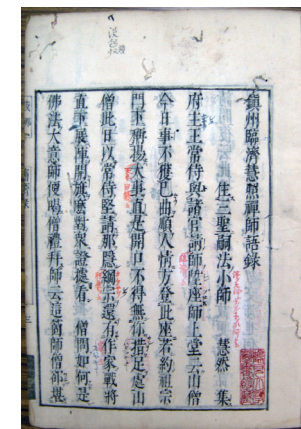 鎮州臨濟慧照禪師語錄
住三聖嗣法小師 慧然 集
府主王常侍與諸官請師陞座師上堂云山僧
今日事不獲已曲順人情方登此座若約祖宗
門下稱揚大事直是開口不得無你措足處山
僧此日以常侍堅請那隱綱宗還有作家戰將
直下展陣開旗麼對衆證據看 僧問如何是
佛法大意師便喝僧禮拜師云這箇師僧却堪